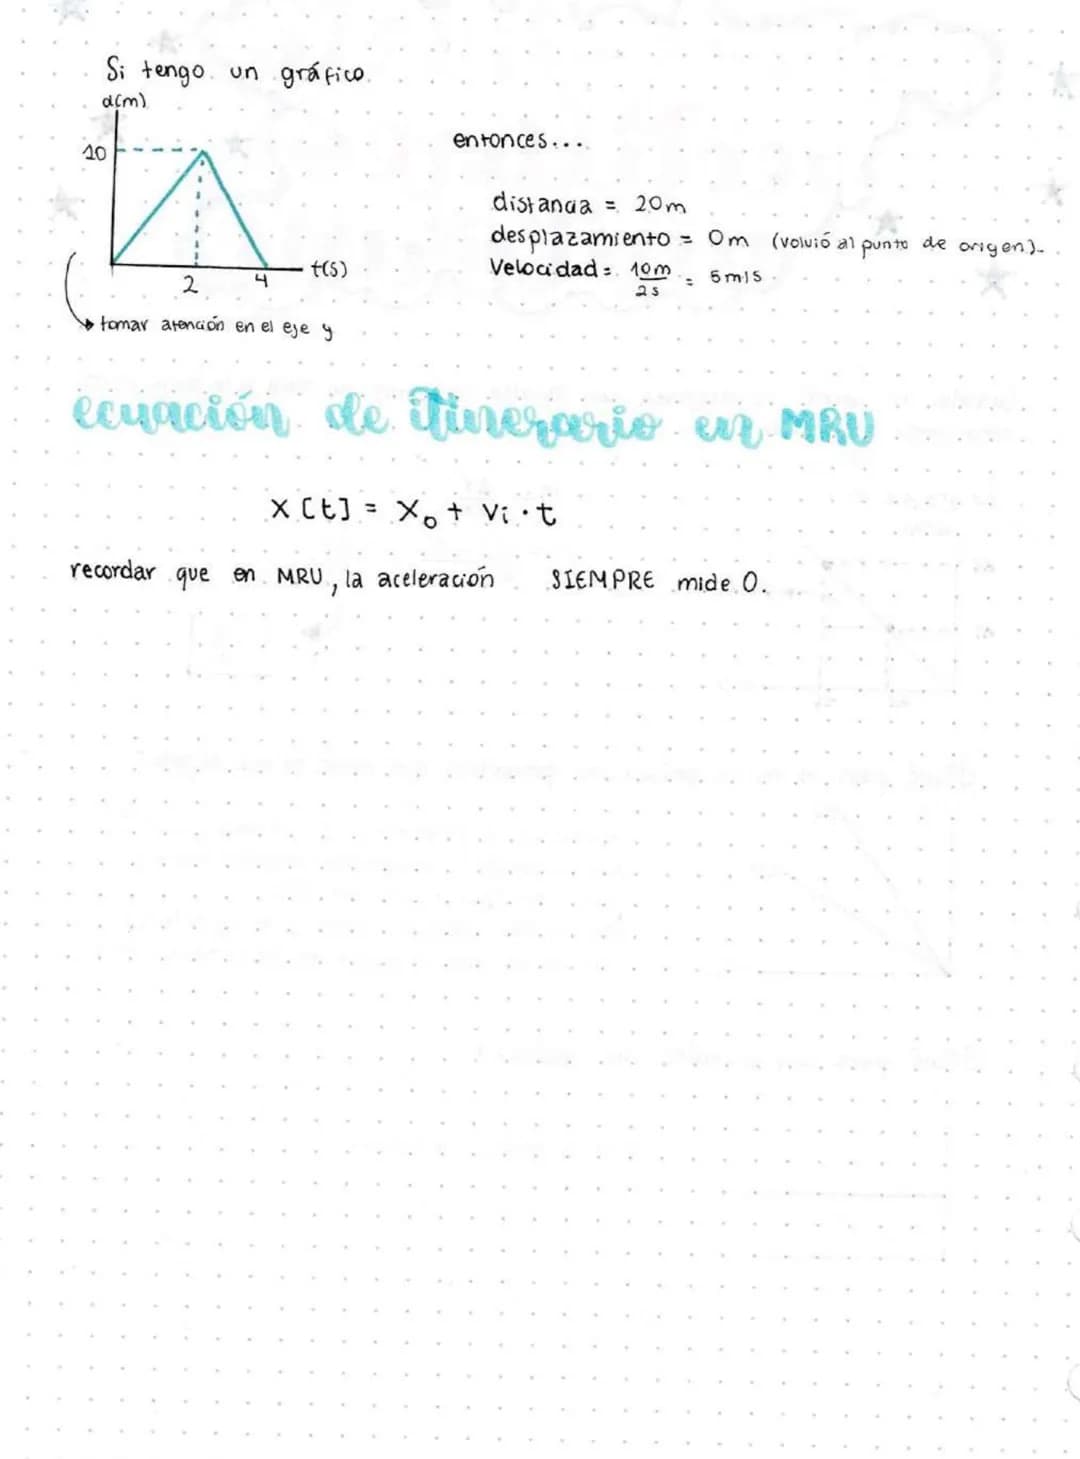 Si tengo un gráfico.
d(m)
10
2
4
t(s)
tomar atención en el eje y
entonces...
distancia = 20m
desplazamiento = 0m (volvió al punto de origen).
Velocidad = 10m / 2s = 5m/s
ecuación de itinerario en MRU
X[t] = X₀ + Vi · t
recordar que en MRU, la aceleración SIEMPRE mide 0.